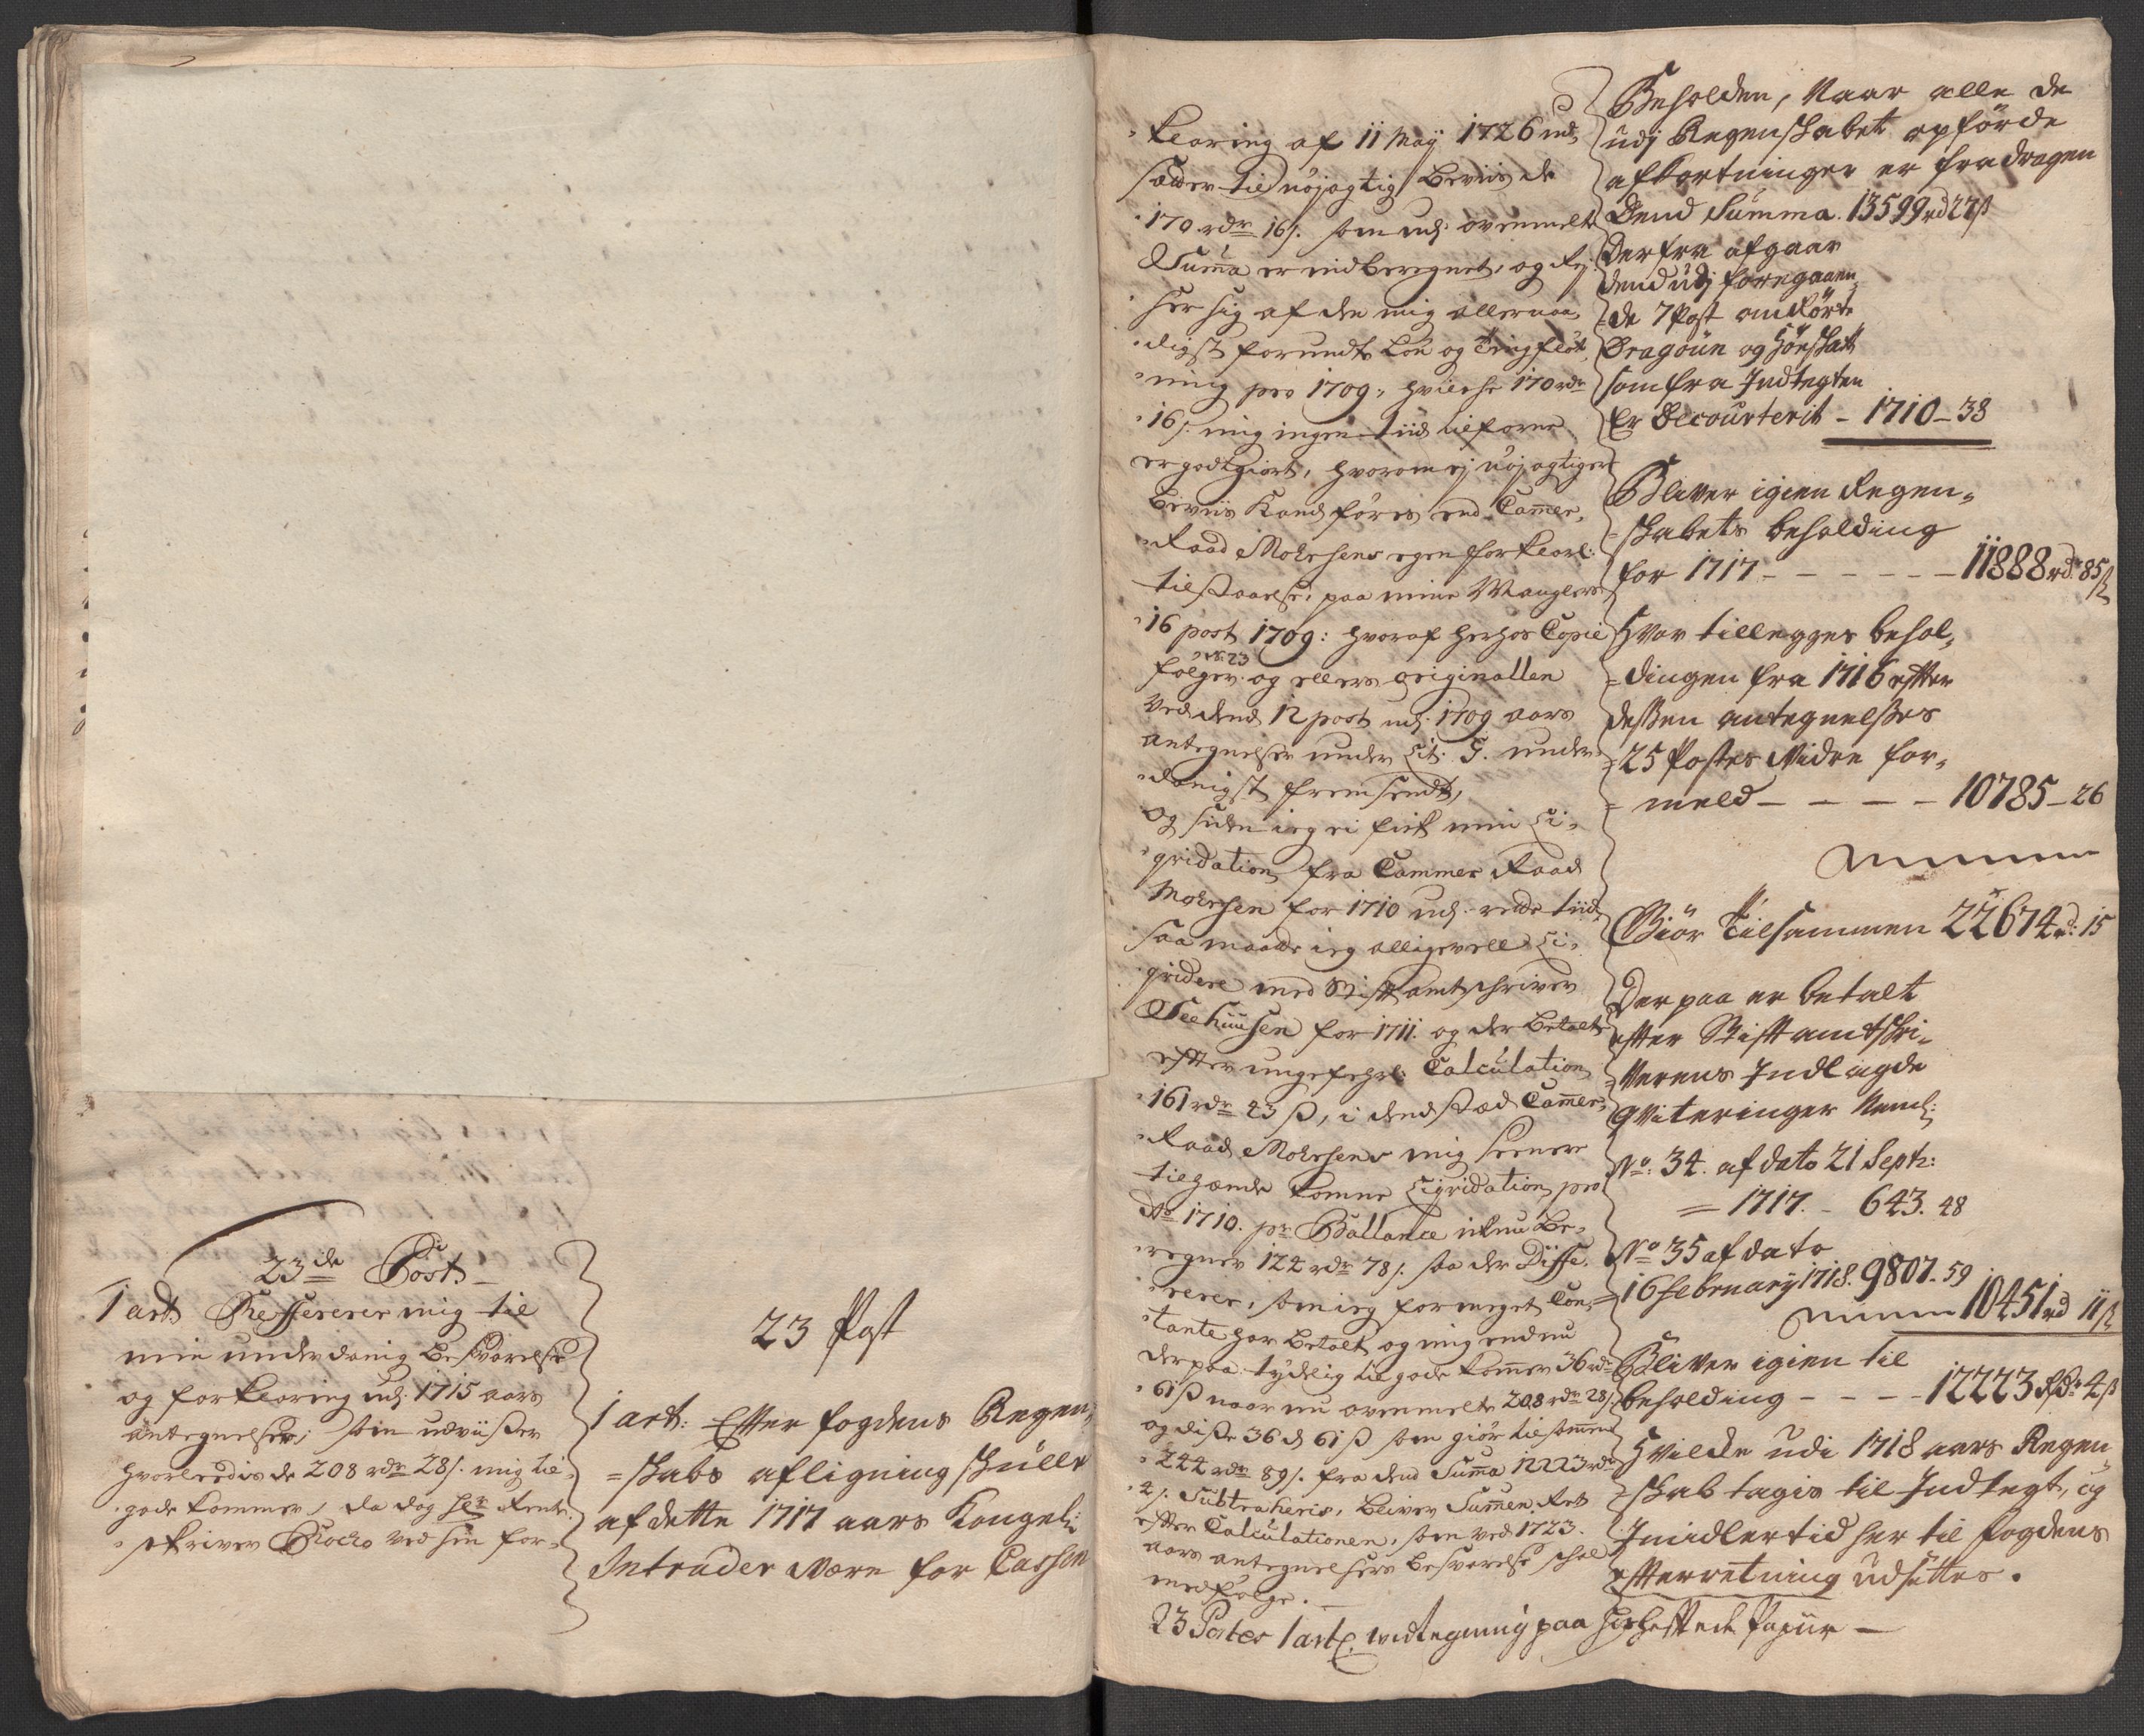 23de Post
1 art: Refererer mig til
min underdanig besvarelse
og forklaring udj 1715 aars
antegnelser, som udviiser
hvorledis de 208 rdr 28 s. mig til
gode kommer, da dog hr Rente
skriver Rocko ved sin for-
23 Post
1 art: Efter fogdens Regen-
=skabs afligning skulle
af dette 1717 aars Kongel:
Intrader være for Cassen
klaring af 11 May 1726 ud-
sætter til nøjagtig beviis de
170 rdr 16 s. som udj ovenmelte
Suma er indberegnet, og
sig af den mig allernaa-
digst forundte Løn og
ning pro 1709, hvilche 170 rdr
16 s. mig ingen tiid tilforne
er godtgiort, hvorom ej nøjagtiger
beviis kand føres end Camer-
Raad Mohrsens egen forklar:
tilstaaelse, paa mine Mangler
16 post 1709: hvoraf herhos Copie
No: 23
følger og ellers originallen
ved dend 12 post udj 1709 aars
antegnelser under Lit: G. under-
danigst fremsendt,
og siden ieg ei fik min Li-
qvidation fra Cammer Raad
Mohrsen for 1710 udj rette tiid
saa maatte ieg alligevell Li-
qvidere med Stiftamtschriver
Seehuusen for 1711. og der betalt
efter ungefehrl: Calculation
161 rdr 43 s, i dend stæd Camer-
Raad Mohrsens mig seenere
tilhænde komne Liqvidation pro
Ao 1710. pr Ballance ikun be-
regner 124 rdr 78 s. saa der Diffe-
rerer, som ieg for meget Con-
tante har betalt og mig endnu
derpaa tydelig til gode kommer 36 rdr
61 s naar nu ovenmelte 208 rdr 28 s.
og disse 36 d 61 s som giør tilsamen
244 rdr 89 s. fra dend Suma 12223 rdr
4 s. Subtraheris, bliver Sumen Ret
efter Calculationen, som ved 1723.
aars antegnelsers besvarelse schal
medfølge.
23 Postes 1 art: vidtegning paa herheftede Papiir
Beholden, Naar alle de
udj Regenskabet opførde
afkortninger er fradragen
Dend Summa. 13599 rd 27 s
Derfra afgaar
dend udj foregaaen-
de 7 Post anførte
Dragoun og
som fra Indtegten
Er Decourterit - 1710 - 38
Bliver igien Regen-
=skabets beholding
for 1717 - - - - - - 11888 rdr 85 s
Hvor tillegges behol-
=dingen fra 1716 efter
dessen antegnelses
25 Postes Videre for-
=meld - - - - - 10785 - 26
Giør Tilsammen 22674 rd: 15
Derpaa er betalt
efter Stiftamtskri-
=verens Indlagde
qviteringer Neml:
No: 34. af dato 21 Septr:
= 1717. - 643. 48
No 35 af dato
16 february 1718. 9807. 59
10451 rd 11 s
Bliver igien til
beholding - - - - 12223 Rdr 4 s
Hvilke udi 1718 aars Regen-
=skab tagis til Indtegt, og
Imidlertid her til fogdens
efterretning udsettes.